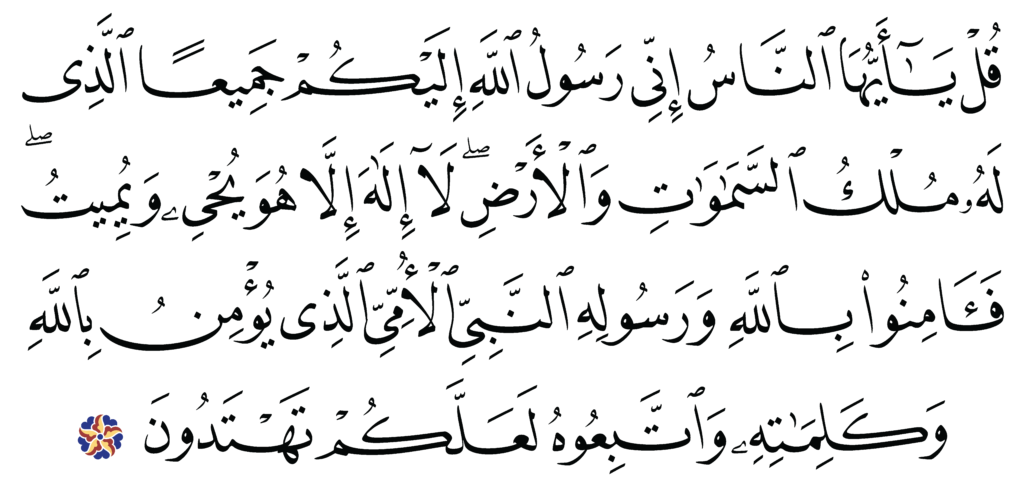 قُلْ يَـٰٓأَيُّهَا ٱلنَّاسُ إِنِّى رَسُولُ ٱللَّهِ إِلَيْكُمْ جَمِيعًا ٱلَّذِى
لَهُۥ مُلْكُ ٱلسَّمَـٰوَٰتِ وَٱلْأَرْضِ ۖ لَآ إِلَـٰهَ إِلَّا هُوَ يُحْىِۦ وَيُمِيتُ ۖ
فَـَٔامِنُوا۟ بِٱللَّهِ وَرَسُولِهِ ٱلنَّبِىِّ ٱلْأُمِّىِّ ٱلَّذِى يُؤْمِنُ بِٱللَّهِ
وَكَلِمَـٰتِهِۦ وَٱتَّبِعُوهُ لَعَلَّكُمْ تَهْتَدُونَ